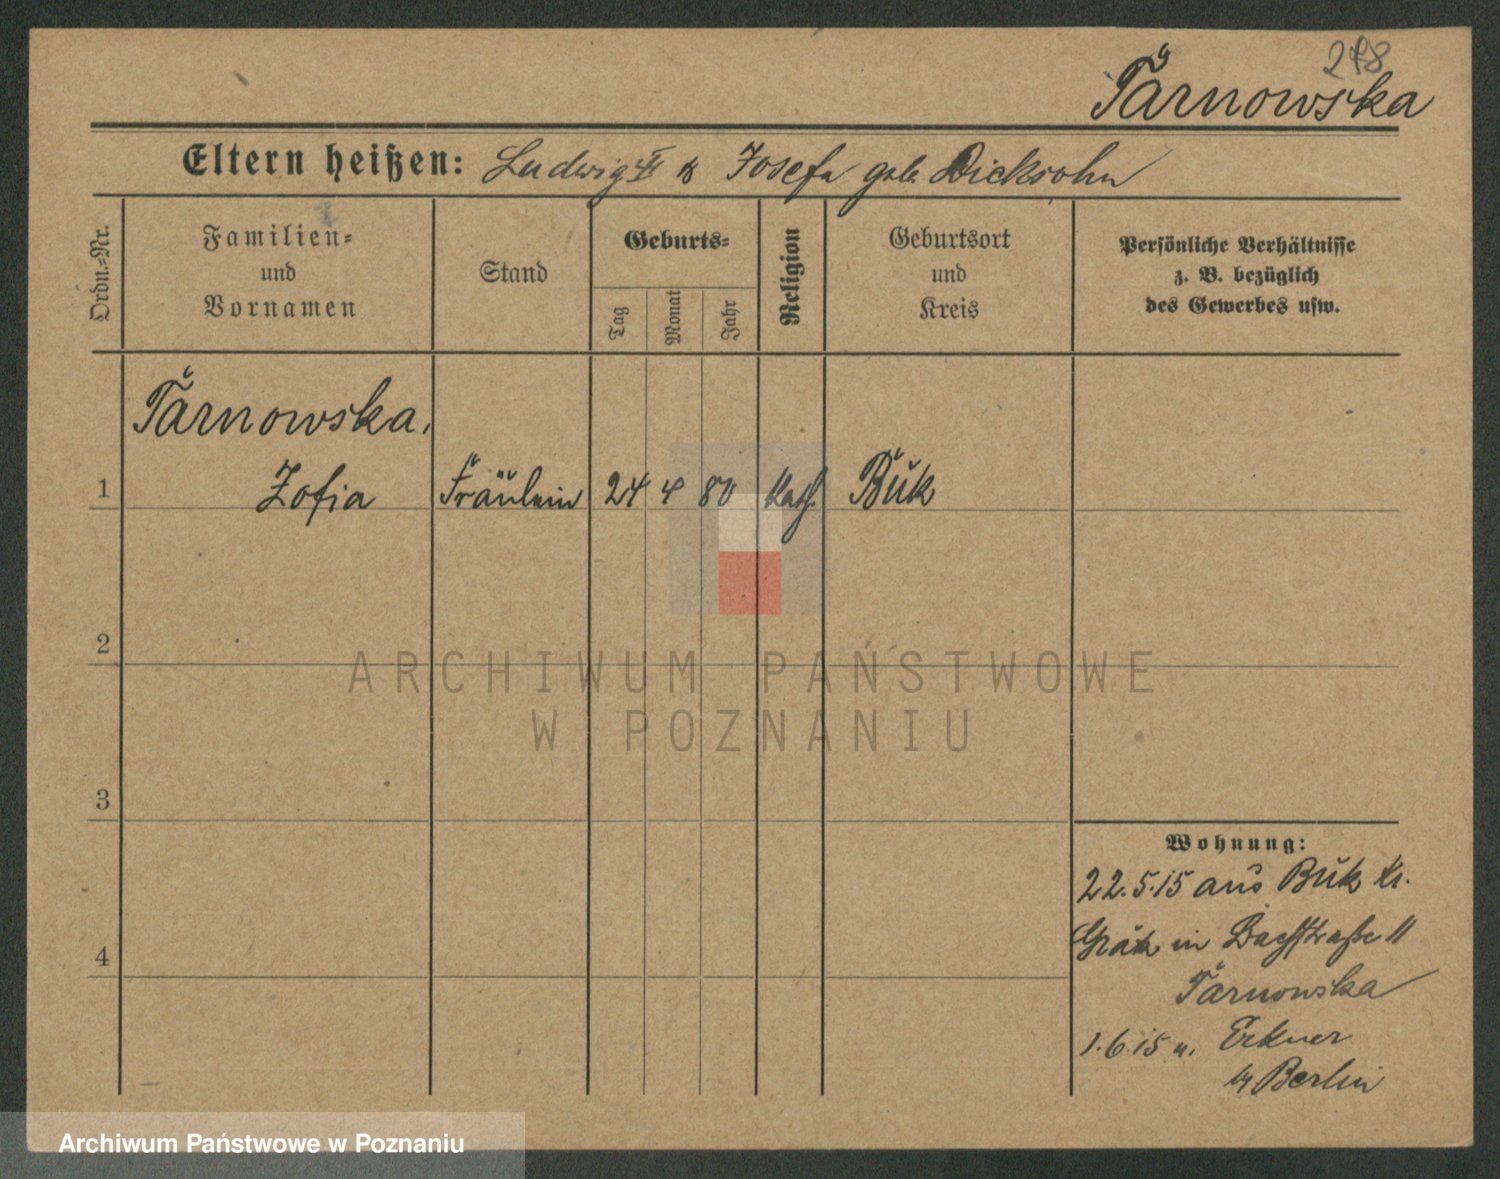 278
Tarnowska
Eltern heißen: Ludwig & Josefa geb. Dicksohn
Ordn.=Nr.
Familien=
und
Vornamen
Stand
Geburts=
Tag
Monat
Jahr
Religion
Geburtsort
und
Kreis
Persönliche Verhältnisse
z. B. bezüglich
des Gewerbes usw.
Tarnowska,
1 Zofia Fräulein 24 4 80 kath. Buk
2
ARCHIWUM PAŃSTWOWE
W POZNANIU
3
4
Wohnung:
22.5.15 aus Buk Kr.
Grätz in Bachstraße 11
Tarnowska
1.6.15 n. Erkner
b/ Berlin
Archiwum Państwowe w Poznaniu